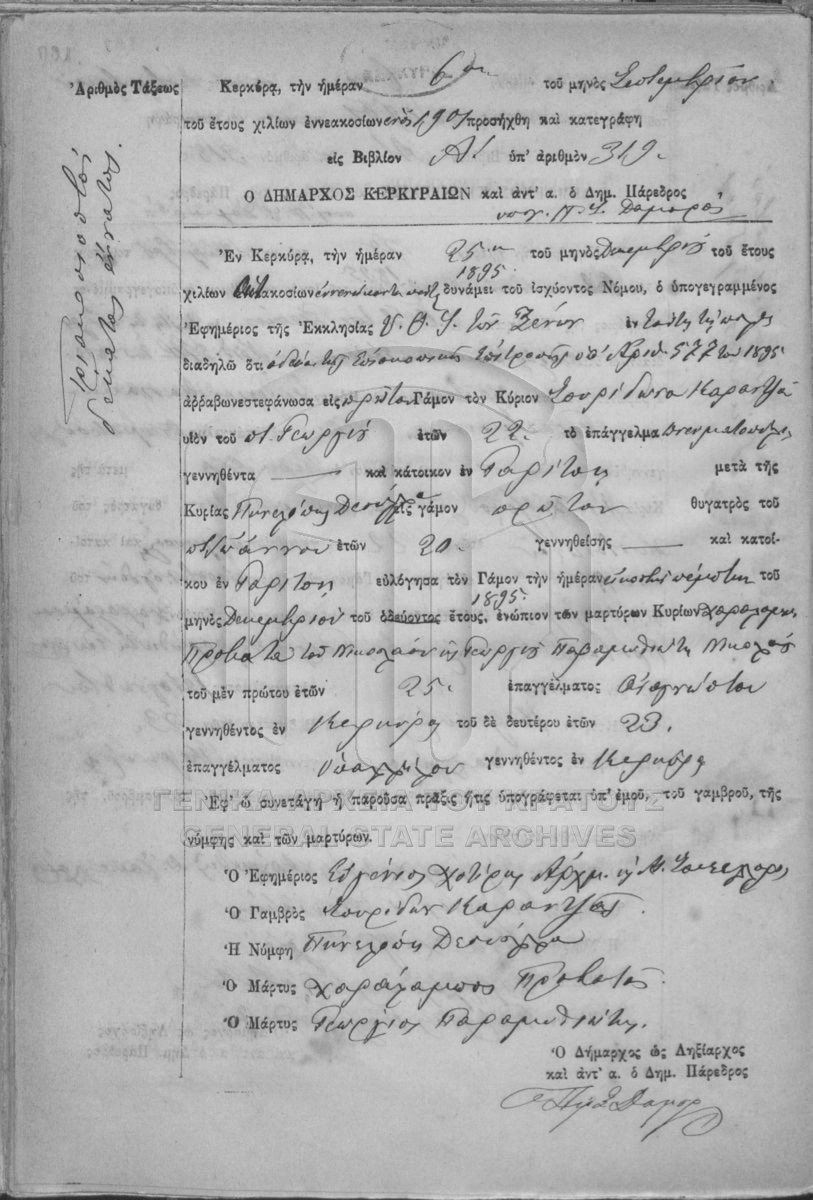 Ἀριθμὸς Τάξεως
Τριακοσιοστὸς
δέκατος ἔννατος.
Κερκύρᾳ, τὴν ἡμέραν 6ην τοῦ μηνὸς Σεπτεμβρίου
τοῦ ἔτους χιλίων ἐννεακοσίων ἑνὸς 1901 προσήχθη καὶ κατεγράφη
εἰς Βιβλίον Α! ὑπ' ἀριθμὸν 319.
Ο ΔΗΜΑΡΧΟΣ ΚΕΡΚΥΡΑΙΩΝ καὶ ἀντ' α. ὁ Δημ. Πάρεδρος
Ἐν Κερκύρᾳ, τὴν ἡμέραν 25ην τοῦ μηνὸς Δεκεμβρίου τοῦ ἔτους
1895
χιλίων ὀκτακοσίων ἐννενήκοντα πέντε δυνάμει τοῦ ἰσχύοντος Νόμου, ὁ ὑπογεγραμμένος
Ἐφημέριος τῆς Ἐκκλησίας Υ. Θ. τῶν Ξένων ἐν ταύτῃ τῇ πόλει
διαδηλῶ ὅτι ἀδείᾳ τῆς Ἐπισκοπικῆς Ἐπιτροπῆς ὑπ' Ἀριθ. 577 του 1895
ἀρραβωνεστεφάνωσα εἰς πρῶτον Γάμον τὸν Κύριον Σπυρίδωνα Καραντζᾶ
υἱὸν τοῦ Γεωργίου ἐτῶν 22. τὸ ἐπάγγελμα
γεννηθέντα — καὶ κάτοικον ἐν Γαρίτσῃ μετὰ τῆς
Κυρίας Πηνελόπης εἰς γάμον πρῶτον θυγατρὸς τοῦ
Ἰωάννου ἐτῶν 20. γεννηθείσης — καὶ κατοί-
κου ἐν Γαρίτσῃ εὐλόγησα τὸν Γάμον τὴν ἡμέραν εἰκοστὴν πέμπτην τοῦ
1895.
μηνὸς Δεκεμβρίου τοῦ ὁδεύοντος ἔτους, ἐνώπιον τῶν μαρτύρων Κυρίων Χαραλάμπη
Προβατᾶ τοῦ Νικολάου κ Γεωργίου Παραμυθιώτη Νικολάου
τοῦ μὲν πρώτου ἐτῶν 25. ἐπαγγέλματος Ἀναγνώστου
γεννηθέντος ἐν Κερκύρᾳ τοῦ δὲ δευτέρου ἐτῶν 23.
ἐπαγγέλματος ὑπαλλήλου γεννηθέντος ἐν Κερκύρᾳ
Ἐφ' ᾧ συνετάγη ἡ παροῦσα πρᾶξις ἥτις ὑπογράφεται ὑπ' ἐμοῦ, τοῦ γαμβροῦ, τῆς
ΓΕΝΙΚΑ ΑΡΧΕΙΑ ΤΟΥ ΚΡΑΤΟΥΣ
νύμφης καὶ τῶν μαρτύρων.
GENERAL STATE ARCHIVES
Ὁ Ἐφημέριος Εὐγένιος Ἀρχιμ.
Ὁ Γαμβρὸς Σπυρίδων Καραντζᾶς.
Ἡ Νύμφη Πηνελόπη
Ὁ Μάρτυς Χαράλαμπος Προβατᾶς.
Ὁ Μάρτυς Γεώργιος Παραμυθιώτης.
Ὁ Δήμαρχος ὡς Ληξίαρχος
καὶ ἀντ' α. ὁ Δημ. Πάρεδρος